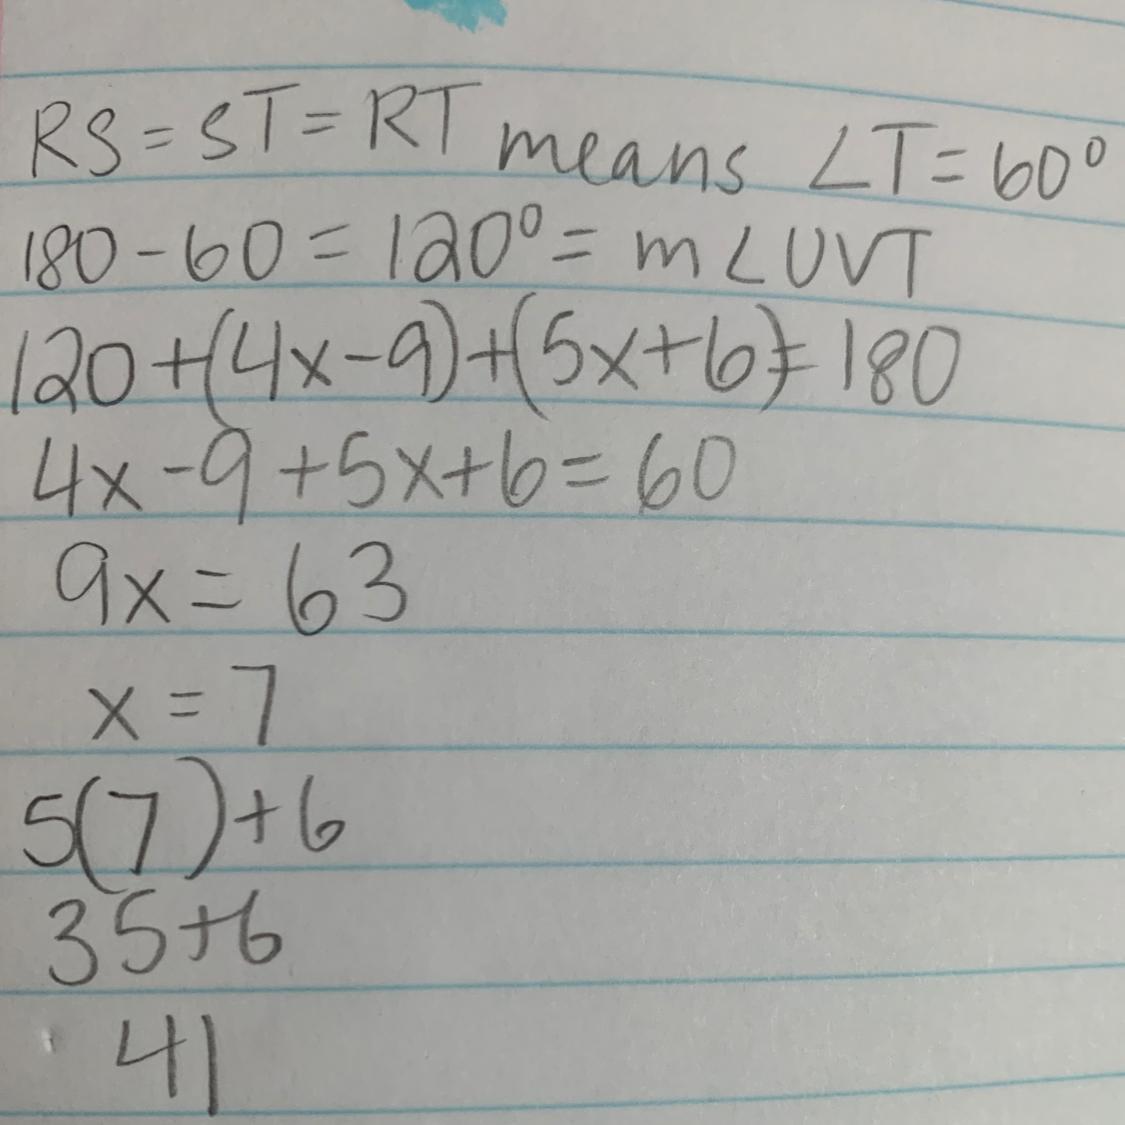 RS = ST = RT means ∠T = 60°
180 - 60 = 120° = m∠UVT
120 + (4x - 9) + (5x + 6) = 180
4x - 9 + 5x + 6 = 60
9x = 63
x = 7
5(7) + 6
35 + 6
41